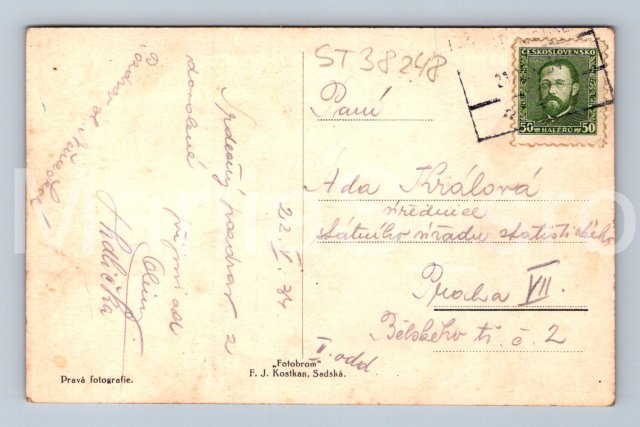 ST 38248
ČESKOSLOVENSKO
50 HALÉŘŮ 50
Paní
Ada Králová
úřednice
státního úřadu statistického
Praha VII.
Bělského tř. č. 2
II. odd.
22. V. 34
Srdečný pozdrav z
dovolené
přijmi od
Pozdrav od
Hadlička
„Fotobrom"
F. J. Kostkan, Sadská.
Pravá fotografie.